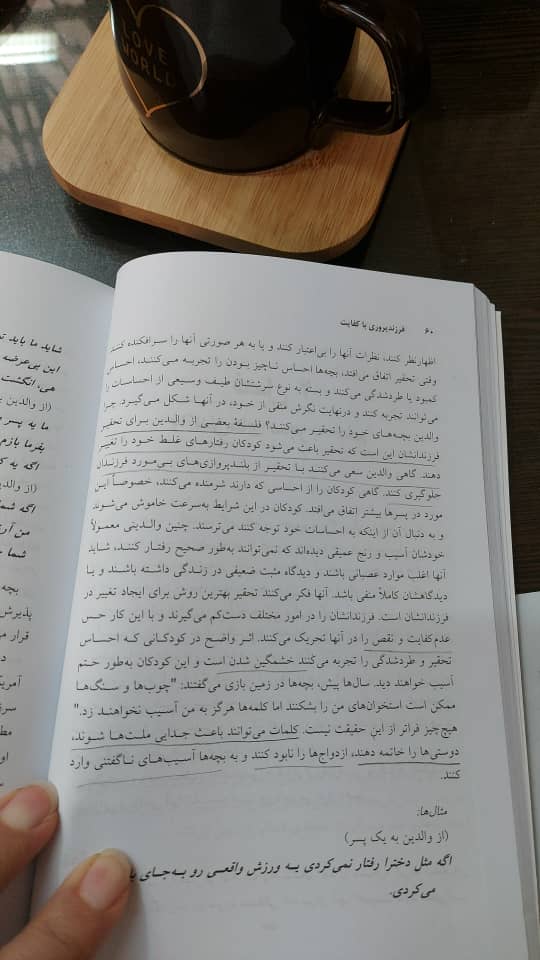 LOVE
WORLD
۶۰ فرزندپروری با کفایت
اظهارنظر کنند، نظرات آنها را بی‌اعتبار کنند و یا به هر صورتی آنها را سرافکنده کنند.
وقتی تحقیر اتفاق می‌افتد، بچه‌ها احساس ناچیز بودن را تجربه می‌کنند، احساس
کمبود یا طردشدگی می‌کنند و بسته به نوع سرشتشان طیف وسیعی از احساسات را
می‌توانند تجربه کنند و درنهایت نگرش منفی از خود، در آنها شکل می‌گیرد. چرا
والدین بچه‌های خود را تحقیر می‌کنند؟ فلسفهٔ بعضی از والدین برای تحقیر
فرزندانشان این است که تحقیر باعث می‌شود کودکان رفتارهای غلط خود را تغییر
دهند. گاهی والدین سعی می‌کنند با تحقیر از بلندپروازی‌های بی‌مورد فرزندان
جلوگیری کنند. گاهی کودکان را از احساسی که دارند شرمنده می‌کنند، خصوصاً این
مورد در پسرها بیشتر اتفاق می‌افتد. کودکان در این شرایط به‌سرعت خاموش می‌شوند
و به دنبال آن از اینکه به احساسات خود توجه کنند می‌ترسند. چنین والدینی معمولاً
خودشان آسیب و رنج عمیقی دیده‌اند که نمی‌توانند به‌طور صحیح رفتار کنند، شاید
آنها اغلب موارد عصبانی باشند و دیدگاه مثبت ضعیفی در زندگی داشته باشند و یا
دیدگاهشان کاملاً منفی باشد. آنها فکر می‌کنند تحقیر بهترین روش برای ایجاد تغییر در
فرزندانشان است. فرزندانشان را در امور مختلف دست‌کم می‌گیرند و با این کار حس
عدم‌کفایت و نقص را در آنها تحریک می‌کنند. اثر واضح در کودکانی که احساس
تحقیر و طردشدگی را تجربه می‌کنند خشمگین شدن است و این کودکان به‌طور حتم
آسیب خواهند دید. سال‌ها پیش، بچه‌ها در زمین بازی می‌گفتند: "چوب‌ها و سنگ‌ها
ممکن است استخوان‌های من را بشکنند اما کلمه‌ها هرگز به من آسیب نخواهند زد."
هیچ‌چیز فراتر از این حقیقت نیست. کلمات می‌توانند باعث جدایی ملت‌ها شوند،
دوستی‌ها را خاتمه دهند، ازدواج‌ها را نابود کنند و به بچه‌ها آسیب‌های ناگفتنی وارد
کنند.
مثال‌ها:
(از والدین به یک پسر)
اگه مثل دخترا رفتار نمی‌کردی یه ورزش واقعی رو به‌جای
می‌کردی.
شاید ما باید
این بی‌عرضه
هی، انگشت
(از والدین
ما به پسر
بقرما بازم
اگه یه
(از والدین
اگه شما
من
شما
بچه
پذیرش
قرار